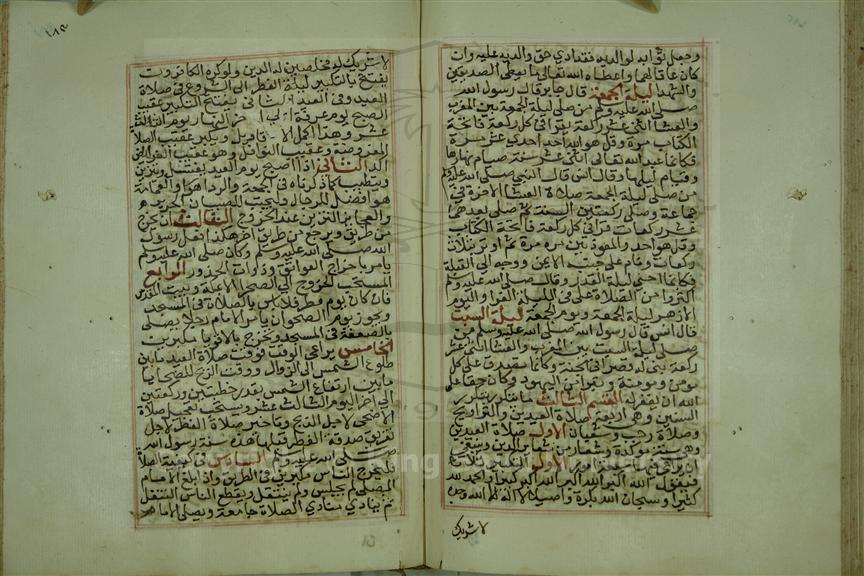 وجعل ثوابه لوالديه فقد ادى حق والديه عليه وان
كان عاقا لهما واعطاه الله تعالى ما يعطى الصديقين
والشهدا ليلة الجمعة قال جابر قال رسول الله
صلى الله عليه وسلم من صلى ليلة الجمعة بين المغرب
والعشا اثنتى عشر ركعة يقرا فى كل ركعة فاتحة
الكتاب مرة وقل هو الله احد احدى عشر مرة
فكانما عبد الله تعالى اثنتى عشر سنة صيام نهارها
وقيام ليلها وقال انس قال النبى صلى الله عليه وسلم
من صلى ليلة الجمعة صلاة العشا الاخرة فى
جماعة وصلى ركعتين السنة ثم صلى بعدهما
عشر ركعات قرا فى كل ركعة فاتحة الكتاب
وقل هو احد والمعوذتين مرة مرة ثم اوتر بثلاث
ركعات ونام على جنبه الايمن ووجهه الى القبلة
فكانما احيى ليلة القدر وقال صلى الله عليه وسلم
اكثروا من الصلاة على فى الليلة الغرا واليوم
الازهر ليلة الجمعة ويوم الجمعة ليلة السبت
قال انس قال رسول الله صلى الله عليه وسلم من
صلى ليلة السبت بين المغرب والعشا اثنى عشر
ركعة بنى له قصرا فى الجنة وكانما تصدق على كل
مومن ومومنة وتبرا من اليهود وكان حقا على
الله ان يغفر له القسم الثالث ما يتكرر بتكرر
السنين وهى اربعة صلاة العيدين والتراويح
وصلاة رجب وشعبان الاول صلاة العيدين
وهى سنة موكدة وشعار من شعاير الدين وينبغى
ان يراعى فيها سبعة امور الاول التكبير ثلاثا
فيقول الله اكبر الله اكبر الله اكبر كبيرا والحمد لله
كثيرا وسبحان الله بكرة واصيلا لا اله الا الله وحده
لا شريك
١٨٣
لا شريك له مخلصين له الدين ولو كره الكافرون
يفتتح بالتكبير ليلة الفطر الى الشروع فى صلاة
العيد وفى العيد الثانى يفتتح التكبير عقيب
الصبح يوم عرفة الى اخر النهار يوم الثالث
عشر وهذا اكمل الاقاويل ويكبر عقيب الصلاة
المفروضة وعقيب النوافل وهو عقيب الفرايض
اكد الثانى اذا اصبح يوم العيد يغتسل ويتزين
ويتطيب كما ذكرناه فى الجمعة والردا هو والعمامة
هو افضل للرجال وليجنب الصبيان الحرير
والعجايز التزين عند الخروج الثالث ان يخرج
من طريق ويرجع من طريق اخر هكذا فعل رسول
الله صلى الله عليه وسلم وكان صلى الله عليه وسلم
يامر باخراج العواتق وذوات الخدور الرابع
المستحب الخروج الى الصحرا الا بمكة وبيت المقدس
فان كان يوم مطر فلا باس بالصلاة فى المسجد
ويجوز يوم الصحو ان يامر الامام رجلا يصلى
بالضعفة فى المسجد ويخرج بالاقويا مكبرين
الخامس يراعى الوقت فوقت صلاة العيد ما بين
طلوع الشمس الى الزوال ووقت الذبح للضحايا
ما بين ارتفاع الشمس بقدر خطبتين وركعتين
الى اخر اليوم الثالث عشر ويستحب تعجيل صلاة
الاضحى لاجل الذبح وتاخير صلاة الفطر لاجل
تفريق صدقة الفطر قبلها هذه سنة رسول الله
صلى الله عليه وسلم السادس فى كيفية الصلاة
فليخرج الناس مكبرين فى الطريق واذا بلغ الامام
المصلى لم يجلس ولم يتنفل ويقطع الناس التنفل
ثم ينادى منادى الصلاة جامعة ويصلى الامام